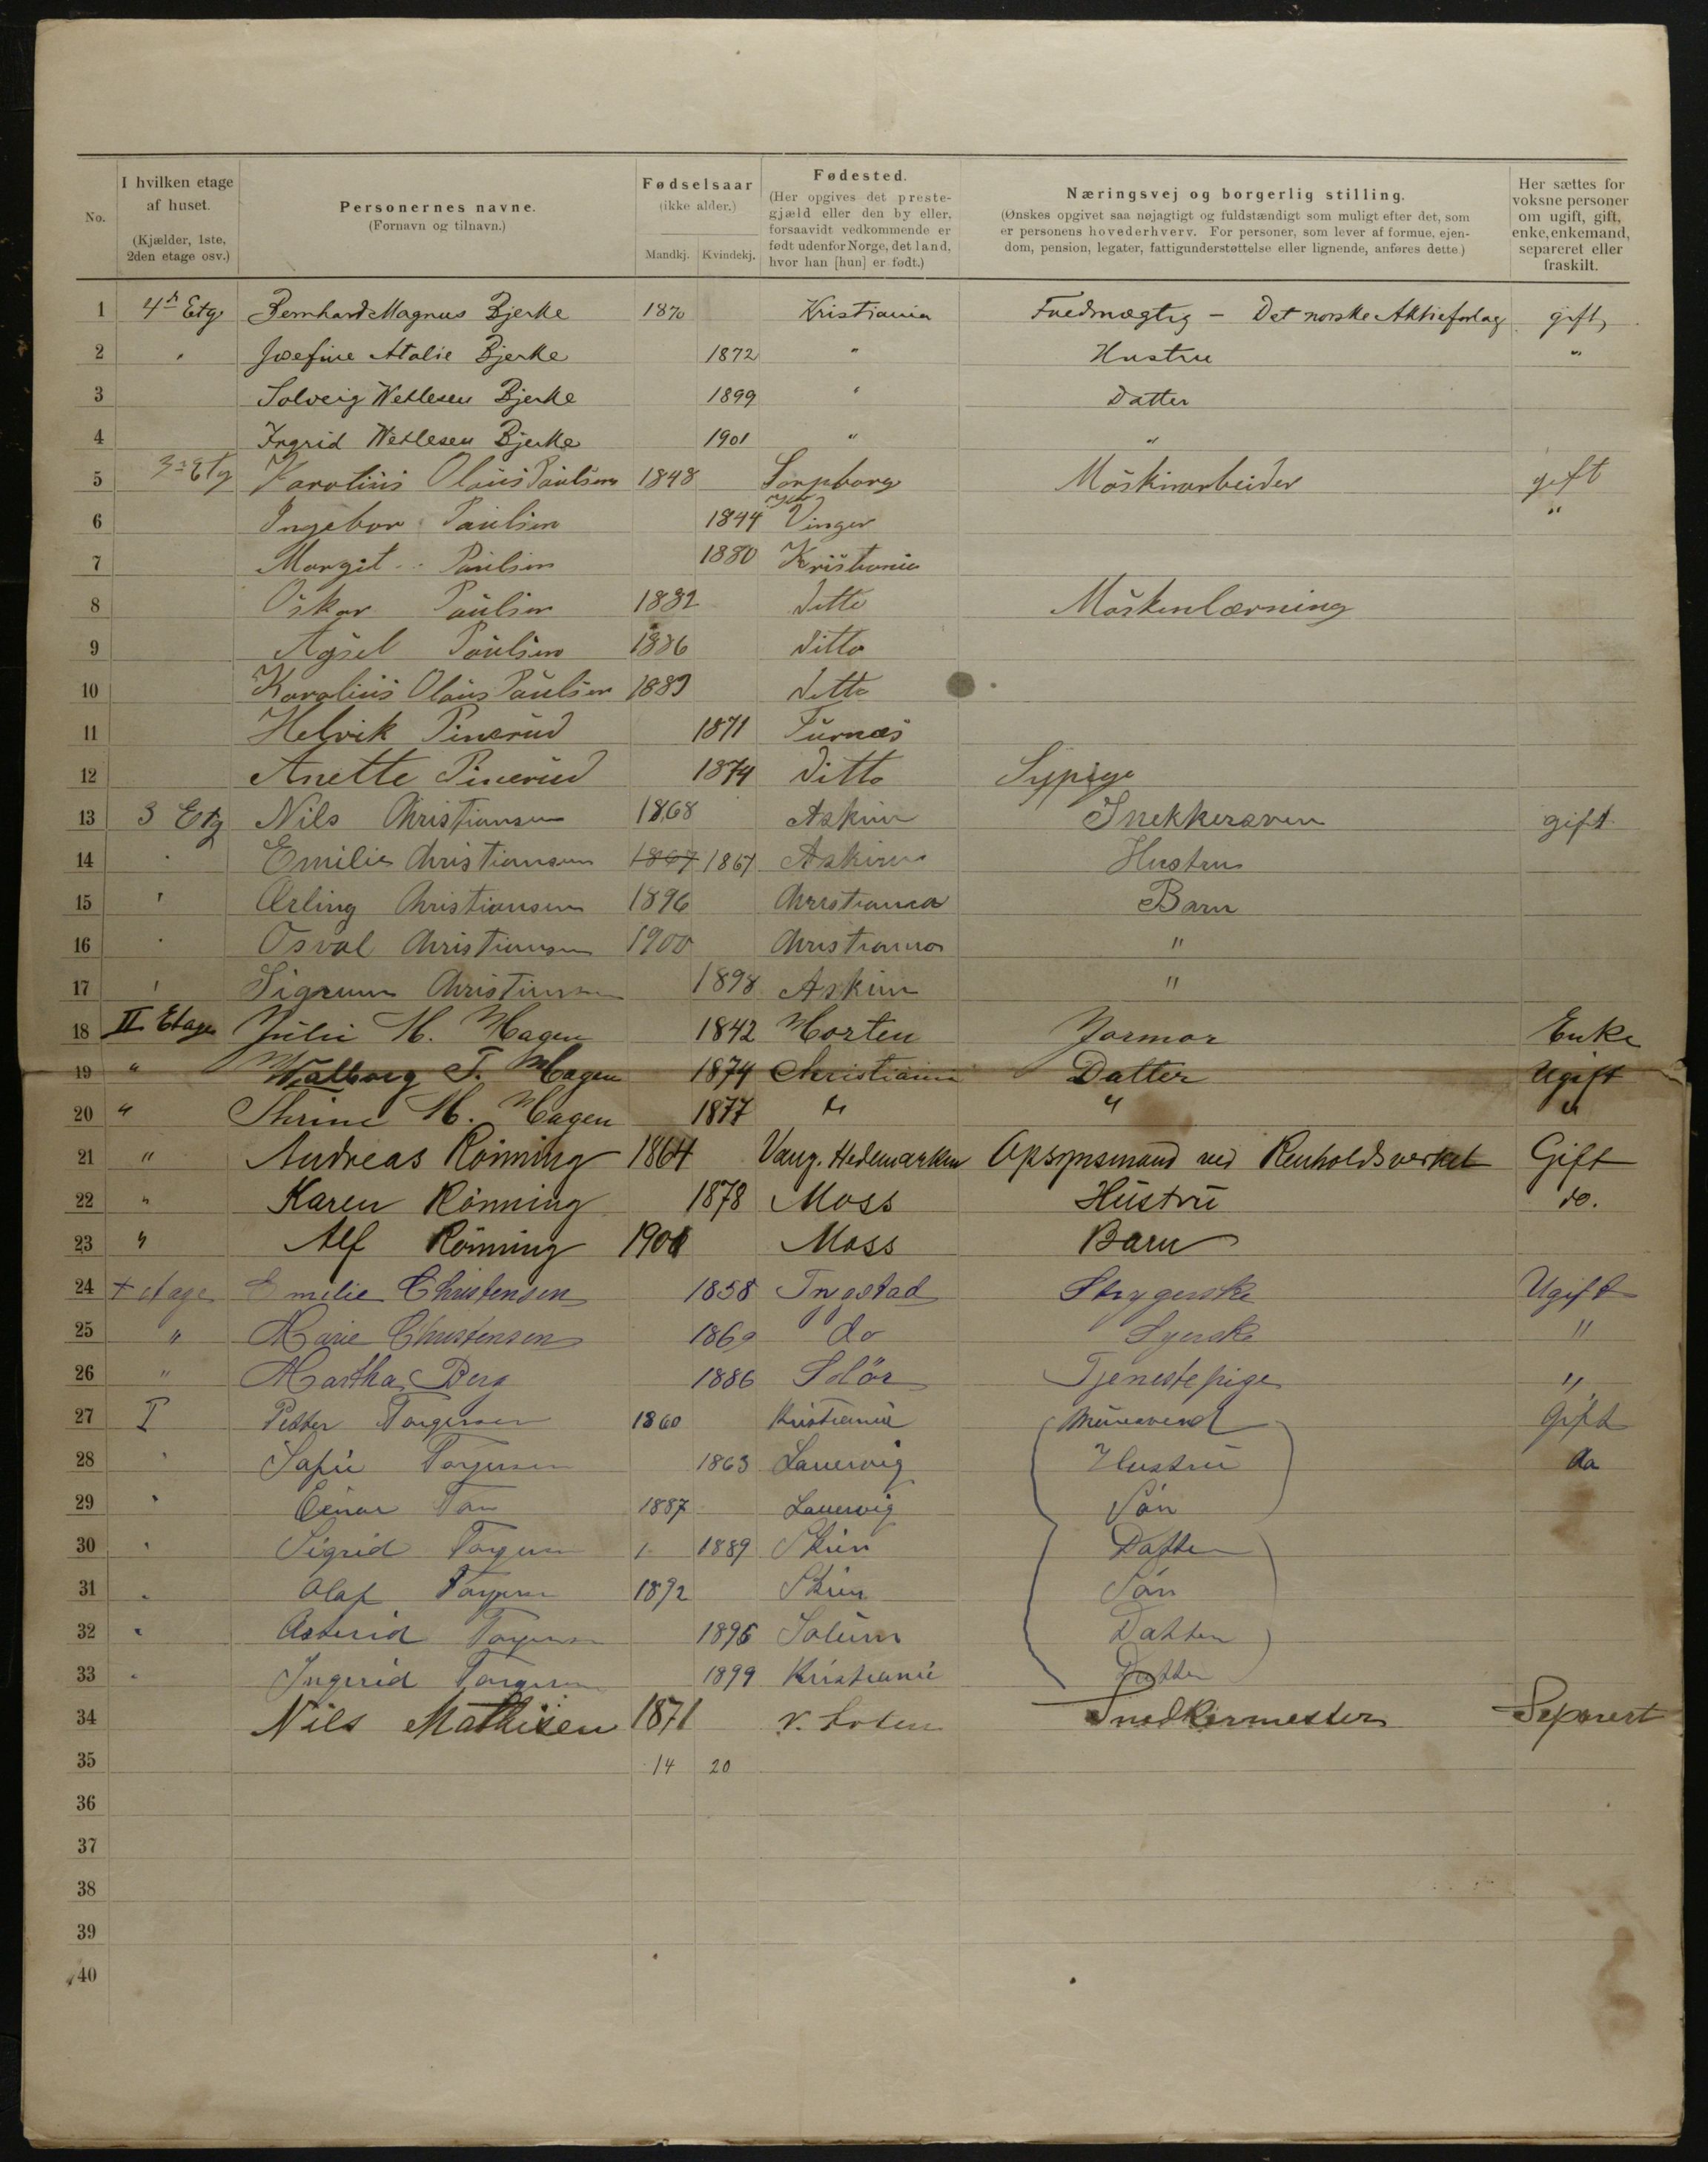 No.
I hvilken etage af huset.
(Kjælder, 1ste, 2den etage osv.)
Personernes navne.
(Fornavn og tilnavn.)
Fødselsaar
(ikke alder.)
Mandkj. Kvindekj.
Fødested.
(Her opgives det prestegjæld eller den by eller, forsaavidt vedkommende er født udenfor Norge, det land, hvor han [hun] er født.)
Næringsvej og borgerlig stilling.
(Ønskes opgivet saa nøjagtigt og fuldstændigt som muligt efter det, som er personens hovederhverv. For personer, som lever af formue, ejendom, pension, legater, fattigunderstøttelse eller lignende, anføres dette.)
Her sættes for voksne personer om ugift, gift, enke, enkemand, separeret eller fraskilt.
1 4de Etg Bernhard Magnus Bjerke 1870 Kristiania Fuldmægtig - Det norske Aktieforlag gift
2 " Josefine Atalie Bjerke 1872 " Hustru "
3 Solveig Wetlesen Bjerke 1899 " Datter
4 Ingrid Wetlesen Bjerke 1901 " "
5 3die Etg Karolius Olaus Paulsen 1848 Sarpborg Maskinarbeider gift
6 Ingebor Paulsen 1844 Vinger "
7 Margit Paulsen 1880 Kristiania
8 Oskar Paulsen 1882 ditto Maskenlærning
9 Agsel Paulsen 1886 ditto
10 Karolius Olaus Paulsen 1889 ditto
11 Helvik Pinerud 1871 Furnæs
12 Anette Pinerud 1874 ditto Sypige
13 3 Etg Nils Christiansen 1868 Askim Snekkersven gift
14 " Emilie Christiansen 1867 1867 Askim Hustru
15 " Erling Christiansen 1896 Christiania Barn
16 " Osval Christiansen 1900 Christiania "
17 " Sigrunn Christiansen 1898 Askim "
18 II Etage Julie M. Hagen 1842 Horten Jormor Enke
19 " Walborg T. Hagen 1874 Christiania Datter Ugift
20 " Thrine M. Hagen 1877 " " "
21 " Andreas Rönning 1864 Vang. Hedemarken Opsynsmand ved Renholdsverket Gift
22 " Karen Rönning 1878 Moss Hustru do.
23 " Alf Rönning 1901 Moss Barn
24 etage Emelie Christensen 1858 Strygerske Ugift
25 " Marie Christensen 186 do Syerske "
26 " Martha Berg 1886 Solör Tjenestepige "
27 I Petter Torgersen 1860 Kristiania Murersvend Gift
28 " Sofie Torgersen 1863 Laurvig Hustru do
29 " Einar Tor 1887 Laurvig Sön
30 " Sigrid Torgersen 1 1889 Skien Datter
31 " Olaf Torgersen 1892 Skien Sön
32 " Asterid Torgersen 1895 Solum Datter
33 " Ingerid Torgersen 1899 Kristiania Datter
34 Nils Mathisen 1871 Snedkermester Seperert
35 14 20
36
37
38
39
40